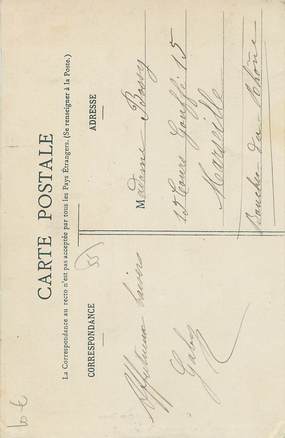 CARTE POSTALE
La Correspondance au recto n'est pas acceptée par tous les Pays Étrangers. (Se renseigner à la Poste.)
CORRESPONDANCE
Affectueux baisers
Gaby
ADRESSE
Madame Bossy
15 Cours Gouffé 15
Marseille
Bouches du Rhône